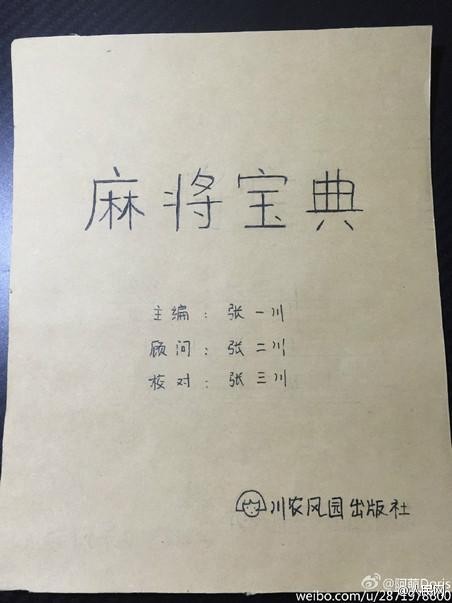 麻将宝典
主编：张一川
顾问：张二川
核对：张三川
川农风园出版社
@阿萌Doris
@人民网
weibo.com/u/2871976800